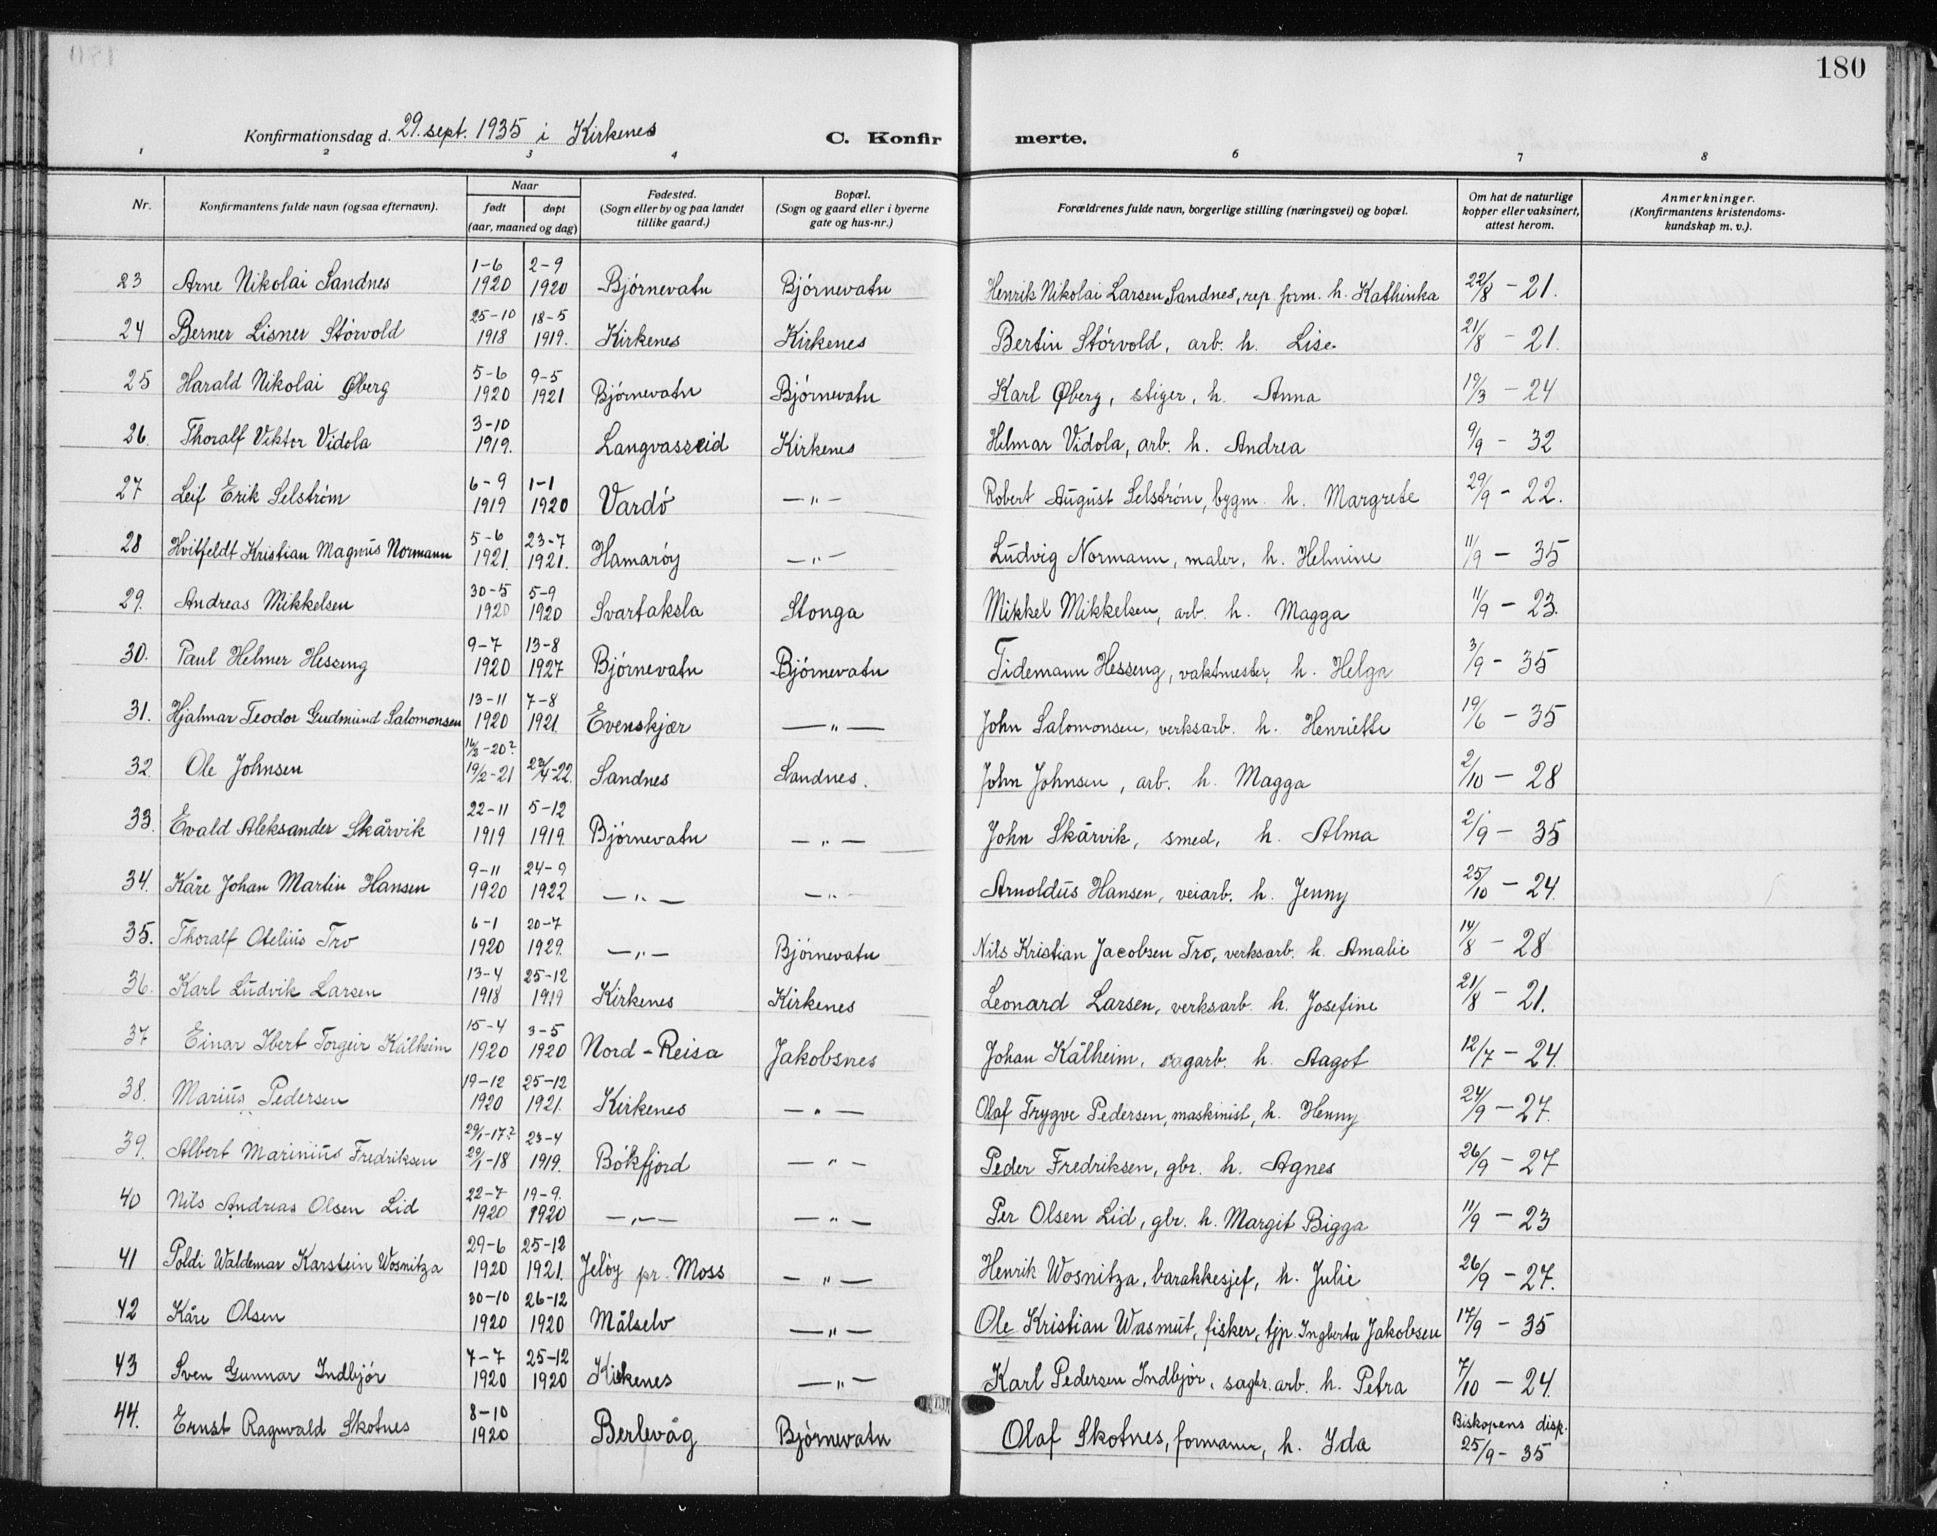 180
Konfirmationsdag d. 29. sept. 1935 i Kirkenes C. Konfir merte.
1 2 3 4 6 7 8
Nr. | Konfirmantens fulde navn (ogsaa efternavn). | Naar født døpt (aar, maaned og dag) | Fødested. (Sogn eller by og paa landet tillike gaard.) | Bopæl. (Sogn og gaard eller i byerne gate og hus-nr.) | Forældrenes fulde navn, borgerlige stilling (næringsvei) og bopæl. | Om hat de naturlige kopper eller vaksinert, attest herom. | Anmerkninger. (Konfirmantens kristendoms-kundskap m. v.).
23 Arne Nikolai Sandnes 1-6 1920 2-9 1920 Bjørnevatn Bjørnevatn Henrik Nikolai Larsen Sandnes, rep. form. h. Kathinka 22/8 - 21.
24 Berner Lisner Størvold 25-10 1918 18-5 1919. Kirkenes Kirkenes Bertin Størvold, arb. h. Lise. 21/8 - 21.
25 Harald Nikolai Øberg 5-6 1920 9-5 1921 Bjørnevatn Bjørnevatn Karl Øberg, stiger, h. Anna 19/3 - 24
26. Thoralf Viktor Vidola 3-10 1919. Langvasseid Kirkenes Helmar Vidola, arb. h. Andrea 9/9 - 32
27 Leif Erik Selstrøm 6-9 1919 1-1 1920 Vardø —"— Robert August Selstrøm, bygm. h. Margrete 29/9 - 22.
28 Hvitfeldt Kristian Magnus Normann 5-6 1921. 23-7 1921. Hamarøy —"— Ludvig Normann, maler, h. Helmine 11/9 - 35
29. Andreas Mikkelsen 30-5 1920 5-9 1920 Svartaksla Stonga Mikkel Mikkelsen, arb. h. Magga 11/9 - 23.
30. Paul Helmer Hesseng 9-7 1920 13-8 1927 Bjørnevatn Bjørnevatn Tidemann Hesseng, vaktmester, h. Helga 3/9 - 35
31. Hjalmar Teodor Gudmund Salomonsen 13-11 1920 7-8 1921. Evenskjær —"— John Salomonsen, verksarb. h. Henriette 19/6 - 35
32. Ole Johnsen 16/3-20? 19/2-21 23/4-22. Sandnes Sandnes. John Johnsen, arb. h. Magga 2/10 - 28
33. Evald Aleksander Skårvik 22-11 1919 5-12 1919. Bjørnevatn —"— John Skårvik, smed, h. Alma 2/9 - 35
34. Kåre Johan Martin Hansen 9-11 1920 24-9 1922 —"— —"— Arnoldus Hansen, veiarb. h. Jenny 25/10 - 24.
35. Thoralf Otelius Tro 6-1 1920 20-7 1929. —"— Bjørnevatn Nils Kristian Jacobsen Tro, verksarb. h. Amalie 14/8 - 28
36. Karl Ludvik Larsen 13-4 1918 25-12 1919 Kirkenes Kirkenes Leonard Larsen, verksarb. h. Josefine 21/8 - 21.
37 Einar Ibert Torgeir Kålheim 15-4 1920 3-5 1920 Nord-Reisa Jakobsnes Johan Kålheim, sagarb. h. Aagot 12/7 - 24.
38. Marius Pedersen 19-12 1920 25-12 1921. Kirkenes —"— Olaf Trygve Pedersen, maskinist, h. Henny 24/9 - 27.
39. Albert Marinius Fredriksen 29/1-17? 29/1-18 23-4 1919. Bøkfjord —"— Peder Fredriksen, gbr. h. Agnes 26/9 - 27
40 Nils Andreas Olsen Lid 22-7 1920 19-9. 1920 —"— —"— Per Olsen Lid, gbr. h. Margit Bigga 11/9 - 23
41 Poldi Waldemar Karstein Wosnitza 29-6 1920 25-12 1921. Jeløy pr. Moss —"— Henrik Wosnitza, barakkesjef, h. Julie 26/9 - 27.
42 Kåre Olsen 30-10 1920 26-12 1920 Målselv —"— Ole Kristian Wasmut, fisker, tjp. Ingberta Jakobsen 17/9 - 35
43 Sven Gunnar Indbjør 7-7 1920 25-12 1920 Kirkenes —"— Karl Pedersen Indbjør, sagbr. arb. h. Petra 7/10 - 24.
44. Ernst Ragnvald Skotnes 8-10 1920 Berlevåg Bjørnevatn Olaf Skotnes, formann, h. Ida Biskopens disp. 25/9 - 35